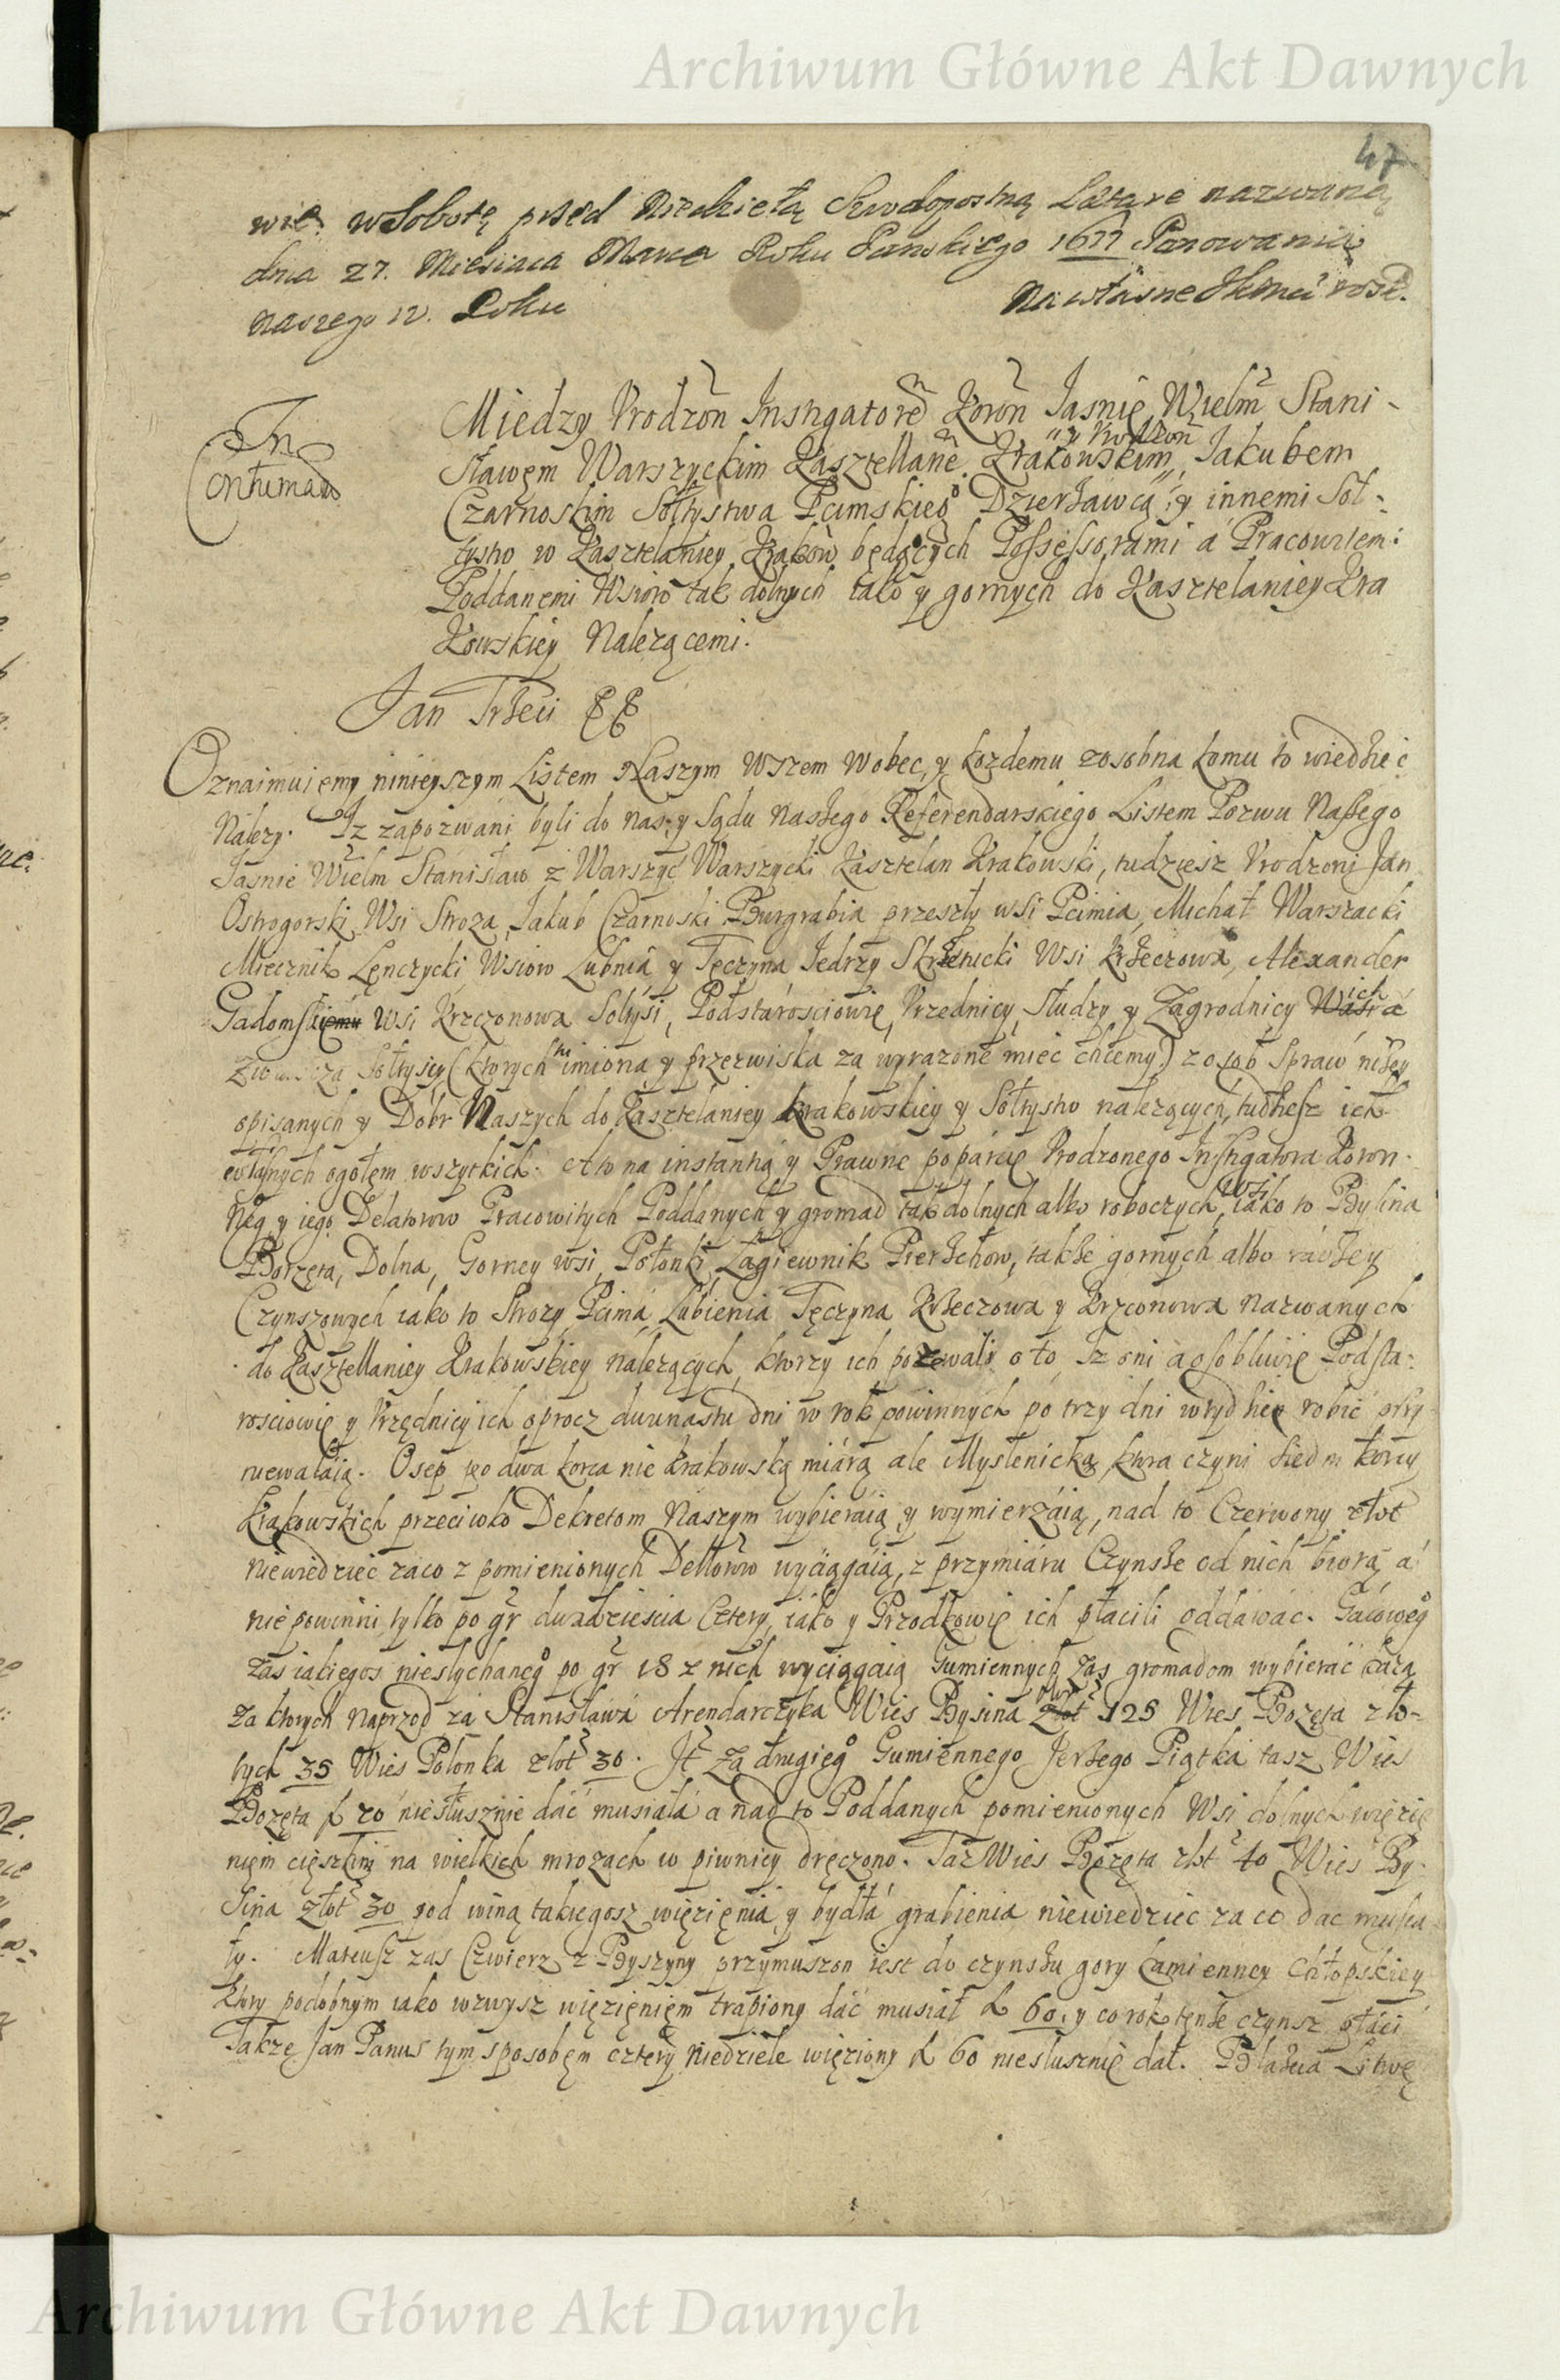 Archiwum Główne Akt Dawnych
47
wie. w Sobotę przed Niedzielą Srzodopostną Lætare nazwaną
dnia 27. Miesiaca Marca Roku Panskiego 1677 Panowania
naszego 12. Roku
Na własne
In
Contumaciam
Miedzy Vrodzon Instigatorē Koron Jasnie Wielm Stani-
sławem Warszyckim Kasztellanē Krakowskim, y Vrodzon Jakubem
Czarnoskim Sołtystwa Pcimskieg° Dzierżawcą y innemi Soł-
tystw w Kasztelaniey Krakow będących Possessorami á Pracowitemi
Poddanemi Wsiow tak dolnych iako y gornych do Kasztelaniey Kra
kowskiey Nalezącemi.
Jan Trzeci
Oznaimuiemy ninieyszym Listem Naszym wszem wobec, y kozdemu zosobna komu to wiedziec
Nalezy. Iz zapozwani byli do nas y Sądu naszego Referendarskiego Listem Pozwu Naszego
Jasnie Wielm Stanisław z Warszyc Warszycki Kasztelan Krakowski, tudziesz Vrodzoni Jan
Ostrogorski Wsi Stroza, Jakub Czarnoski Burgrabia przeszły wsi Pcimia, Michał Warszacki
Miecznik Lęnczycki, Wsiow Lubnia y Tęczyna Jedrzy Skrzenicki Wsi Krzeczowa, Alexander
Gadomski Wsi Krzczonowa Sołtysi, Podstarosciowie, Vrzednicy, Słudzy y Zagrodnicy ich
Sołtysiy (ktorych imiona y przezwiska za wyrazone miec chcemy) z osob Spraw nizey
opisanych y Dobr Naszych do Kasztelaniey Krakowskiey y Sołtystw nalezących, tudziesz ich
własnych ogołem wszytkich. A to na instantią y Prawne poparcie Vrodzonego Instigatora Koron-
neg y iego Delatorow Pracowitych Poddanych y gromad tak dolnych albo roboczych, Wsi iako to Bylina
Borzęta, Dolna, Gorney wsi, Połonki, Łagiewnik Pierzchow, takze gornych albo raczey
Czynszowych iako to Strozy, Pcima, Lubienia Tęczyna Krzeczowa y Krzconowa nazwanych
do Kasztellaniey Krakowskiey nalezących, ktorzy ich pozewali o to, Iz oni a osobliwie Podsta-
rosciowie y Vrzędnicy ich oprocz dwunastu dni w rok powinnych po trzy dni w tydzien robic przy
niewalaią. Osep po dwa korca nie krakowską miarą ale Myslenicką, ktora czyni siedm korcy
Krakowskich przeciwko Dekretom Naszym wybieraią y wymierzaią, nad to Czerwony złot
niewiedziec zaco z pomienionych Dellorow wyciągaią, z przymiaru Czynsze od nich biorą a
nie powinni tylko po gr dwadziescia cztery, iako y Przodkowie ich płacili oddawac. Gacoweg°
zas iakiegos niesłychaneg° po gr 18 z nich wyciągaią Gumiennych zas gromadom wybierac kazą
za ktorych naprzod za Stanisława Arendarczyka Wies Bysina złot 125 Wies Bozęta zło-
tych 35 Wies Polonka złot 30. It za drugieg° Gumiennego Jerzego Piątka tasz Wies
Bozęta f 20 niesłusznie dać musiała a nad to Poddanych pomienionych Wsi dolnych więzie
niem cięszkim na wielkich mrozach w piwnicy dręczono. Taz Wies Bozęta złot 40 Wies By-
sina złot 30 pod winą takiegosz więzięnia, y bydła grabienia niewiedziec za co dac musia
ły. Mateusz zas Czwierz z Byszyny przymuszon iest do czynszu gory kamienney Chłopskiey
ktory podobnym iako wzwysz więzięniem trapiony dać musiał f 60, y co rok tenze czynsz płaci
Takze Jan Panus tym sposobem cztery niedziele więziony f 60 niesłusznie dał. Błazeia Litwę
Archiwum Główne Akt Dawnych